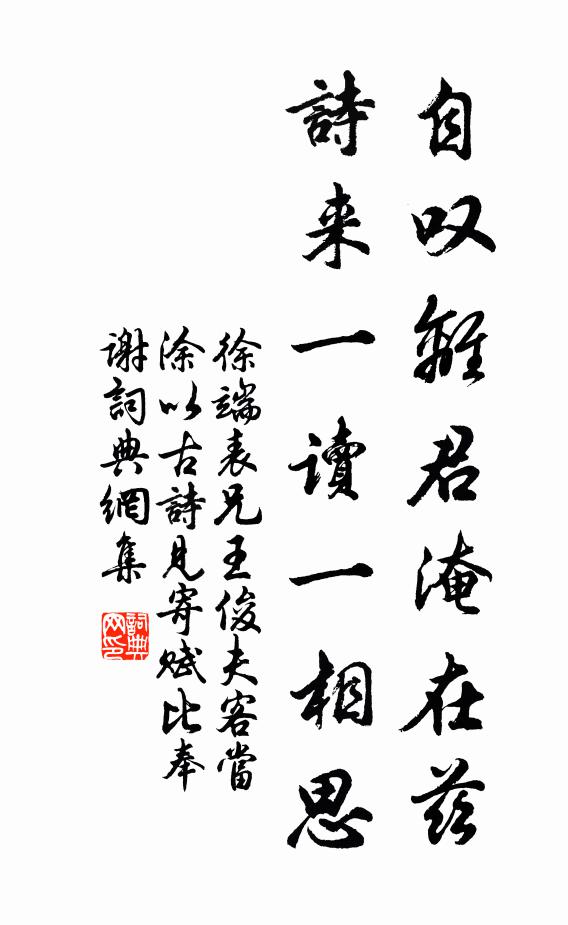 自叹離君淹在茲
詩来一读一相思
徐端表兄王俊夫客當
涂以古詩见寄赋比奉
谢詞典網集
詞典网印